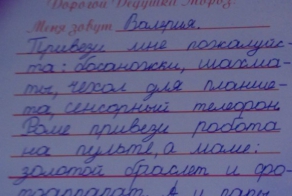 Дорогой Дедушка Мороз!
Меня зовут Валерия.
Привези мне пожалуйс-
та: босаножки, шахма-
ты, чехол для планше-
та, сенсорный телефон
Роме привези робота
на пульте, а маме:
золотой браслет и фо-
тоаппарат. А и папы